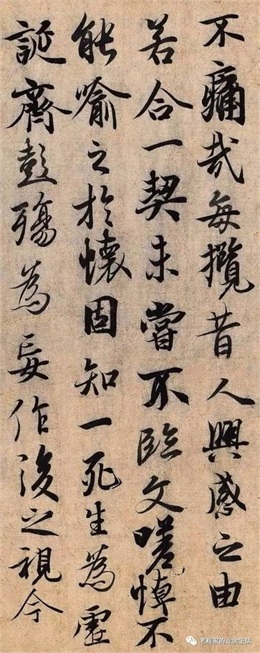 不痛哉每攬昔人興感之由
若合一契未嘗不臨文嗟悼不
能喻之於懷固知一死生為虛
誕齊彭殤為妄作後之視今